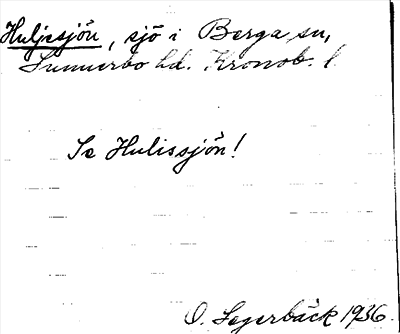 Huljesjön, sjö i Berga sn,
Sunnerbo hd. Kronob. l.
Se Hulissjön!
O. Segerbäck 1936.